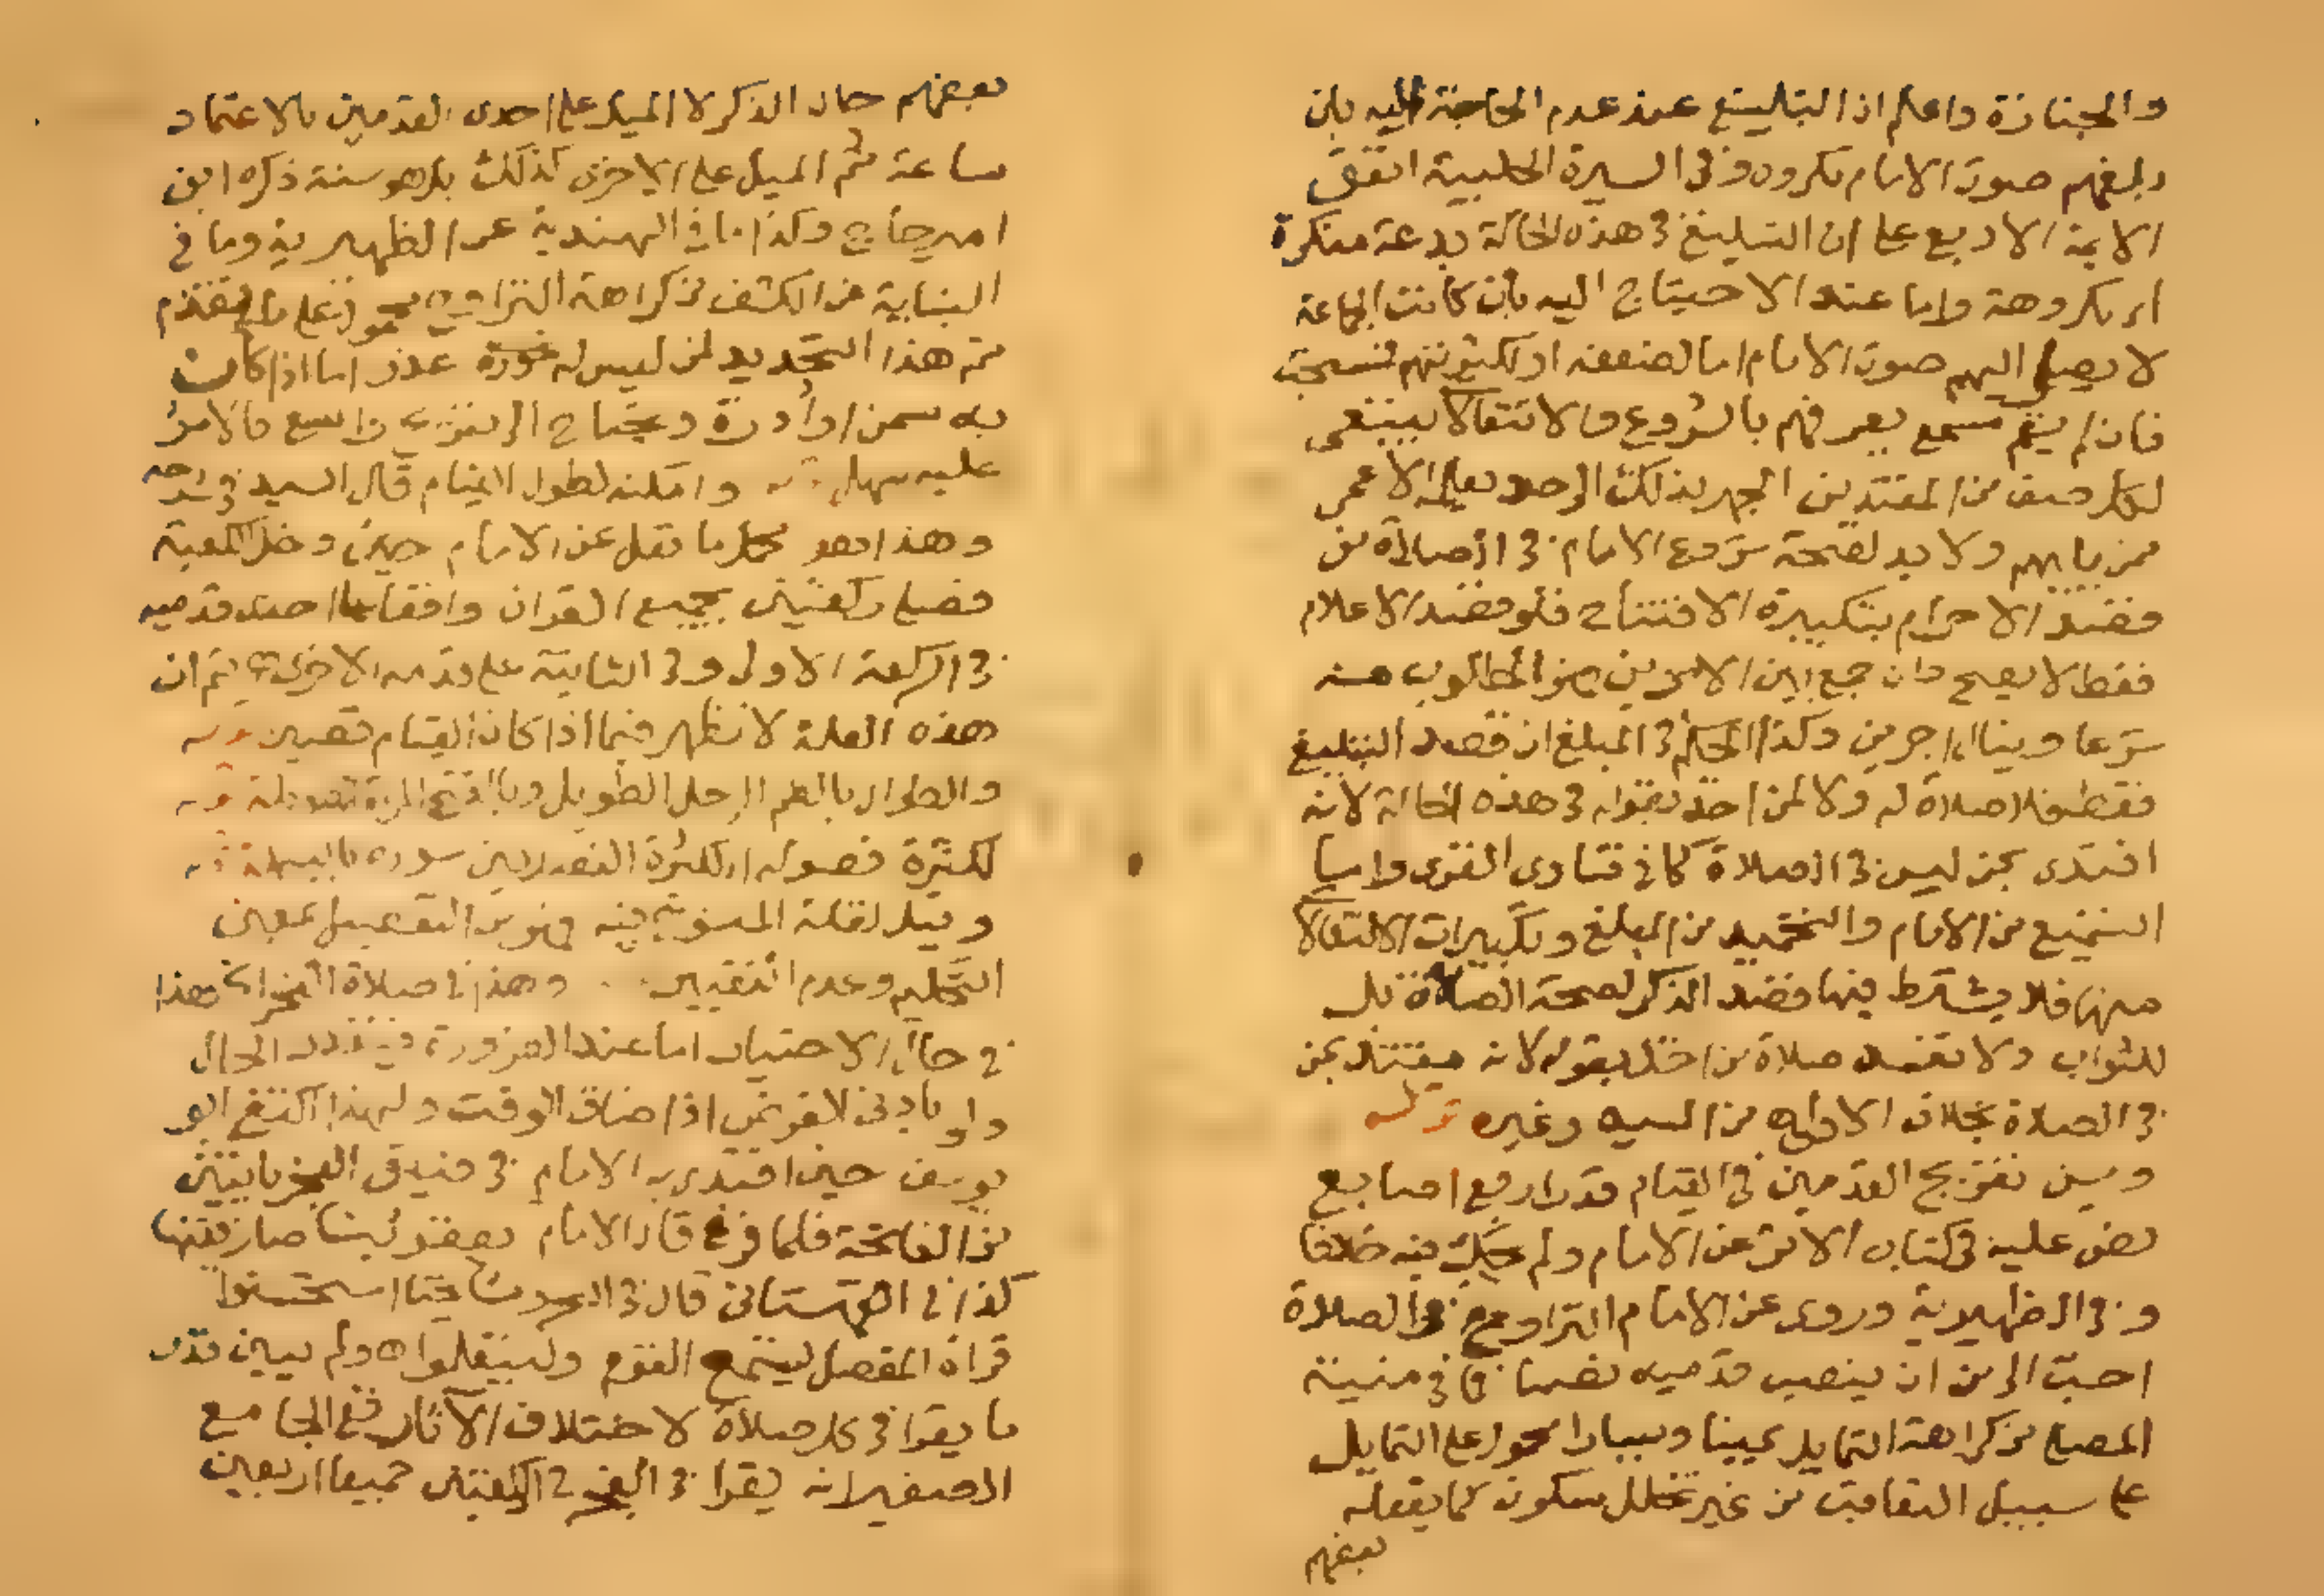 والجنازة واعلم ان التبليغ عند عدم الحاجة اليه بان
بلغهم صوت الامام مكروه وفي السيرة الحلبية اتفق
الايمة الاربع على ان التبليغ في هذه الحالة بدعة منكرة
اي مكروهة واما عند الاحتياج اليه بان كانت الجماعة
لا يصل اليهم صوت الامام اما لضعفه او لكثرتهم فمستحب
فان لم يقم مسمع يعرفهم بالشروع والانتقالات ينبغي
لكل صف من المقتدين الجهر بذلك الى حد يعلمه الاعمى
ممن يليهم ولا بد لصحة شروع الامام في الصلاة من
قصد الاحرام بتكبيرة الافتتاح فلو قصد الاعلام
فقط لا يصح وان جمع بين الامرين فهو المطلوب منه
شرعا وينال اجرين وكذا الحكم في المبلغ ان قصد التبليغ
فقط فلا صلاة له ولا لمن اخذ بقوله في هذه الحالة لانه
اقتدى بمن ليس في الصلاة كما في فتاوى الغزى واما
التسميع من الامام والتحميد من المبلغ وتكبيرات الانتقالات
منهما فلا يشترط فيها قصد الذكر لصحة الصلاة بل
للثواب ولا تفسد صلاة من اخذ بقوله لانه مقتد بمن
في الصلاة بخلاف الاولى من السيد وغيره قوله
ويسن تفريج القدمين في القيام قدر اربع اصابع
نص عليه في كتاب الاثر عن الامام ولم يحك فيه خلافا
وفي الظهيرية وروى عن الامام التراوح في الصلاة
احب الى من ان ينصب قدميه نصبا فما في منية
المصلي من كراهة التمايل يمينا ويسارا محمول على التمايل
على سبيل التعاقب من غير تخلل سكون كما يفعله
بعضهم
بعضهم حال الذكر لا الميل على احدى القدمين بالاعتماد
ساعة ثم الميل على الاخرى كذلك بل هو سنة ذكره ابن
امير حاج وكذا ما في الهندية عن الظهيرية وما في
البناية عن الكشف من كراهة التراوح محمول على ما تقدم
ثم هذا التحديد لمن ليس له عذر اما اذا كان
به سمن او ادرة ويحتاج الى تفريج واسع فالامر
عليه سهل قوله وامكنه لطول القيام قال السيد في شرحه
وهذا هو محمل ما نقل عن الامام حين دخل الكعبة
فصلى ركعتين بجميع القران واقفا على احدى قدميه
في الركعة الاولى وفي الثانية على قدمه الاخرى ثم ان
هذه العلة لا تظهر فيما اذا كان القيام قصير قوله
والطوال بالضم الرجل الطويل وبالفتح المرة الطويلة قوله
لكثرة فصوله او لكثرة الفصل بين سوره بالبسملة
وقيل لقلة المنسوخ فيه فهو من التفصيل بمعنى
التحكيم وعدم التغيير وهذا في صلاة الفجر الخ هذا
في حال الاختيار اما عند الضرورة فبقدر الحال
ولو بادنى الفرض اذا ضاق الوقت ولهذا اكتفى ابو
يوسف حين اقتدى به الامام في ضيق الفجر بايتين
من الفاتحة فلما فرغ قال الامام يعقوبنا صار فقيها
كذا في القهستاني قال في مشايخنا استحسنوا
قراة المفصل ليستمع القوم وليتعلموا ولم يبين قدر
ما يقرا في كل صلاة لاختلاف الآثار ففي الجامع
الصغير انه يقرا في الفجر في الركعتين جميعا اربعين